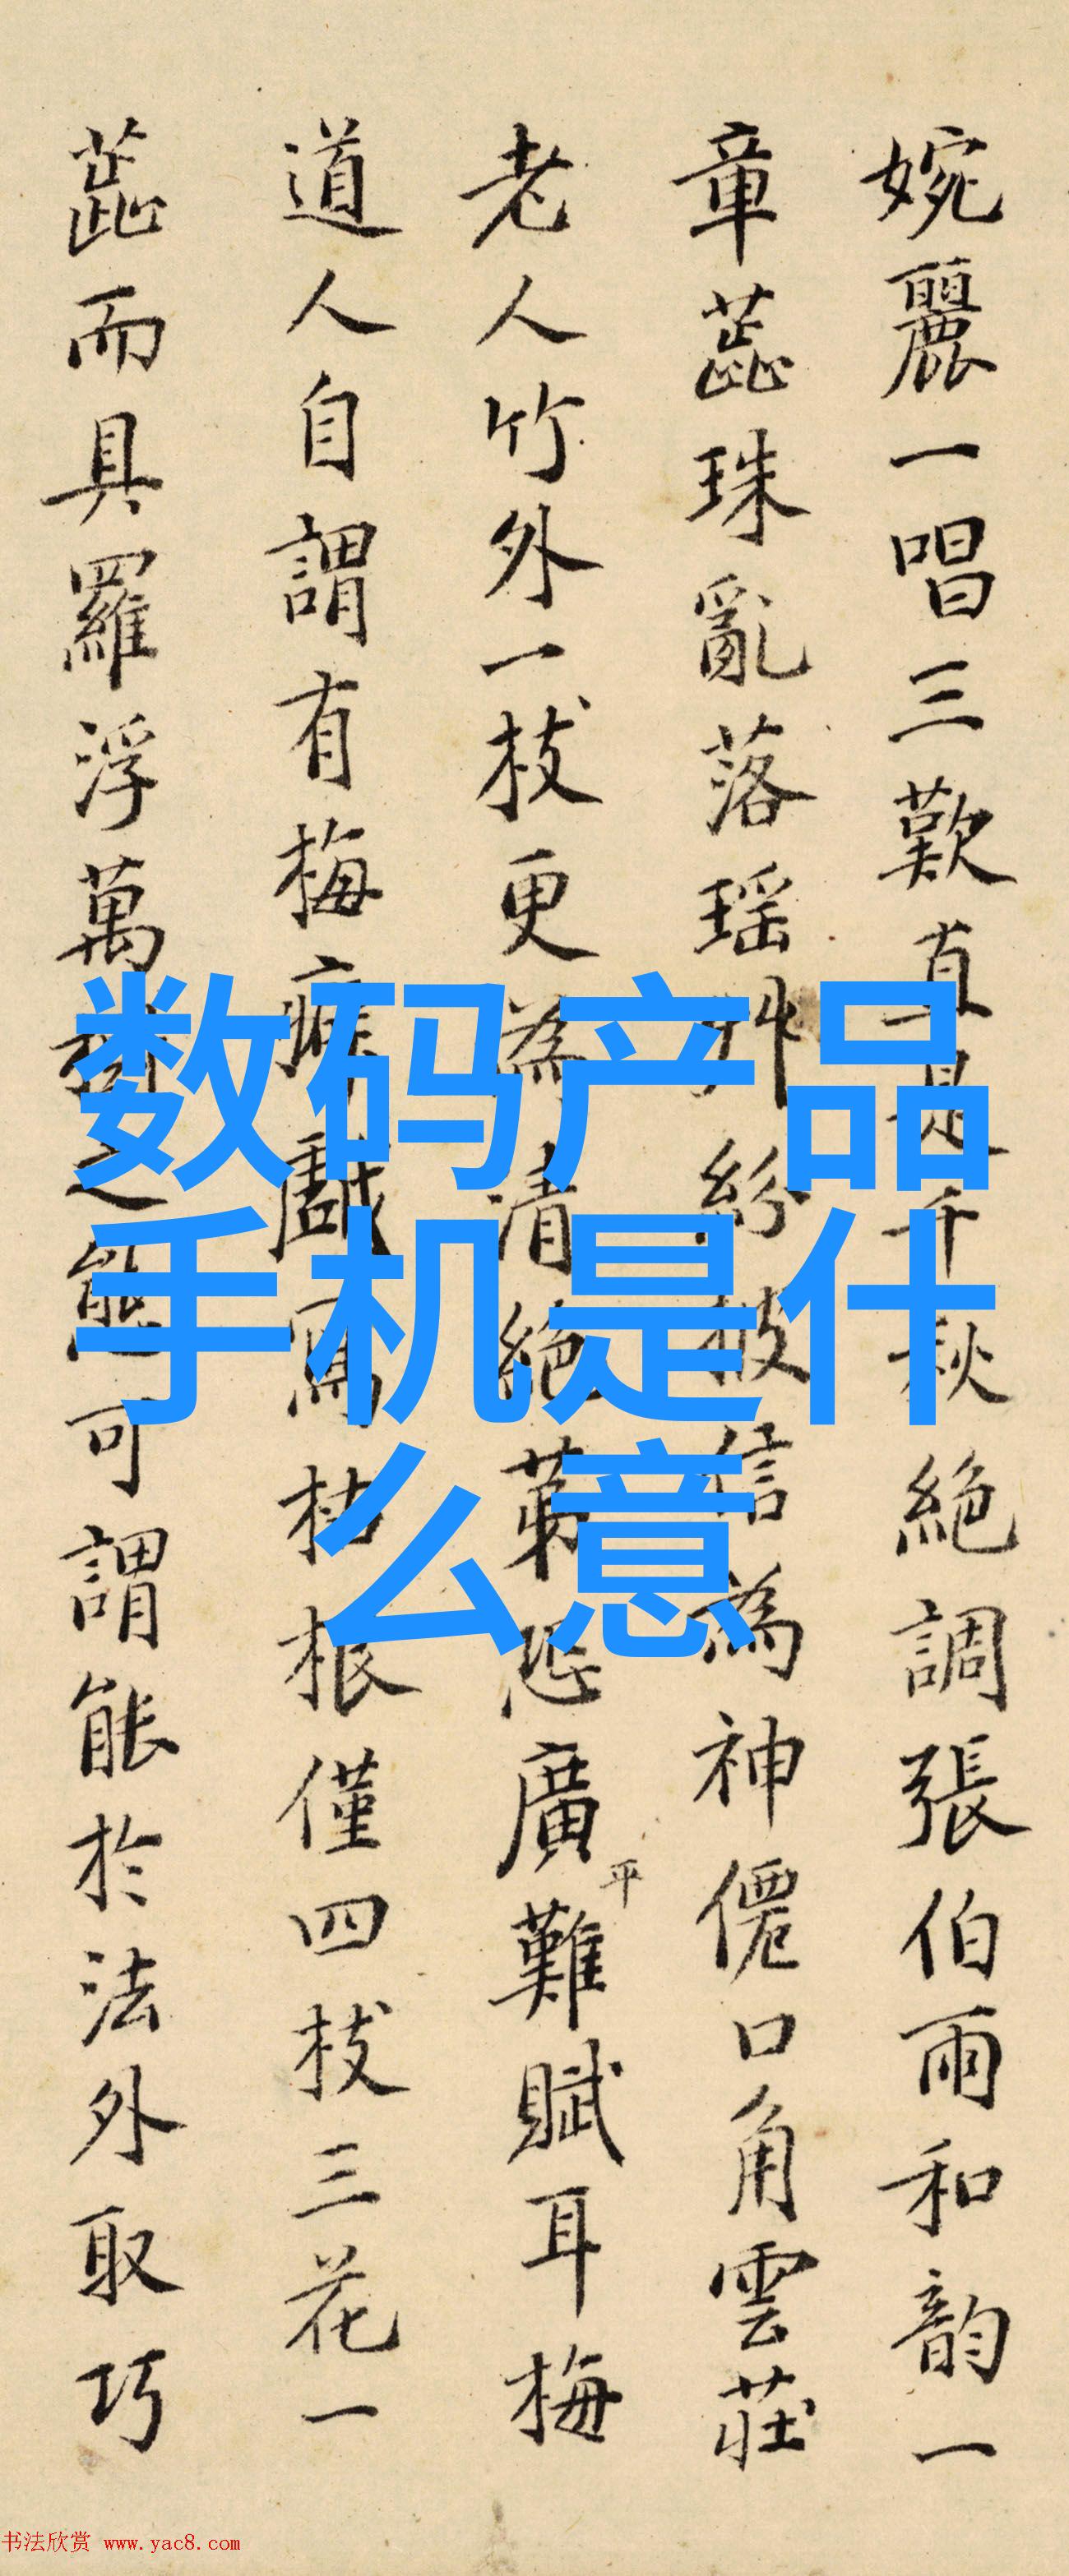 婉麗一唱三歎真是千秋絕調張伯雨和韵一
章蕋珠亂落瑶艸紛披信為神僊口角雲莊
老人竹外一枝更為清絕苐恐廣平難賦耳梅
道人自謂有梅癖戲寫枯根僅四枝三花一
蕋而具羅浮萬之能可謂能於法外取巧
数码产品
手机是什
么意
书法欣赏 www.yac8.com